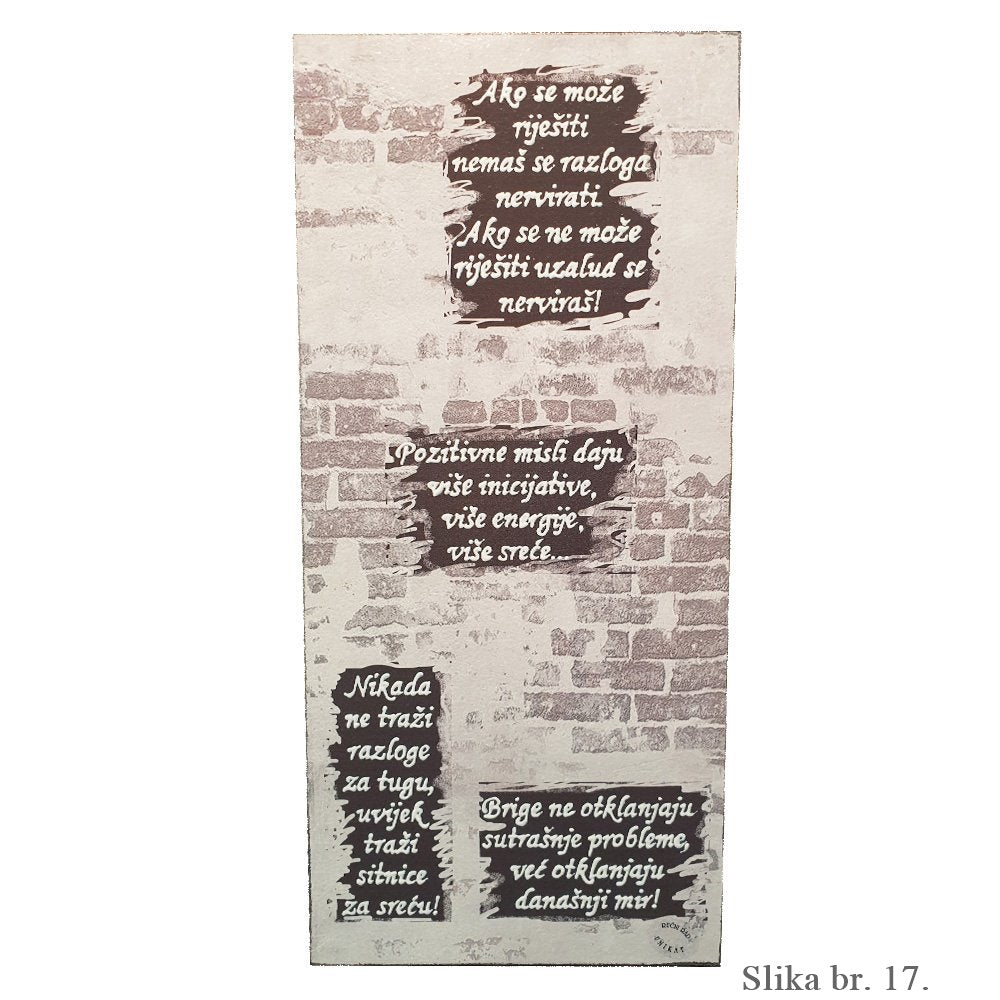 Ako se može
riješiti
nemaš se razloga
nervirati.
Ako se ne može
riješiti uzalud se
nerviraš!
Pozitivne misli daju
više inicijative,
više energije,
više sreće...
Nikada
ne traži
razloge
za tugu,
uvijek
traži
sitnice
za sreću!
Brige ne otklanjaju
sutrašnje probleme,
već otklanjaju
današnji mir!
RUČNI RAD
UNIKAT
Slika br. 17.